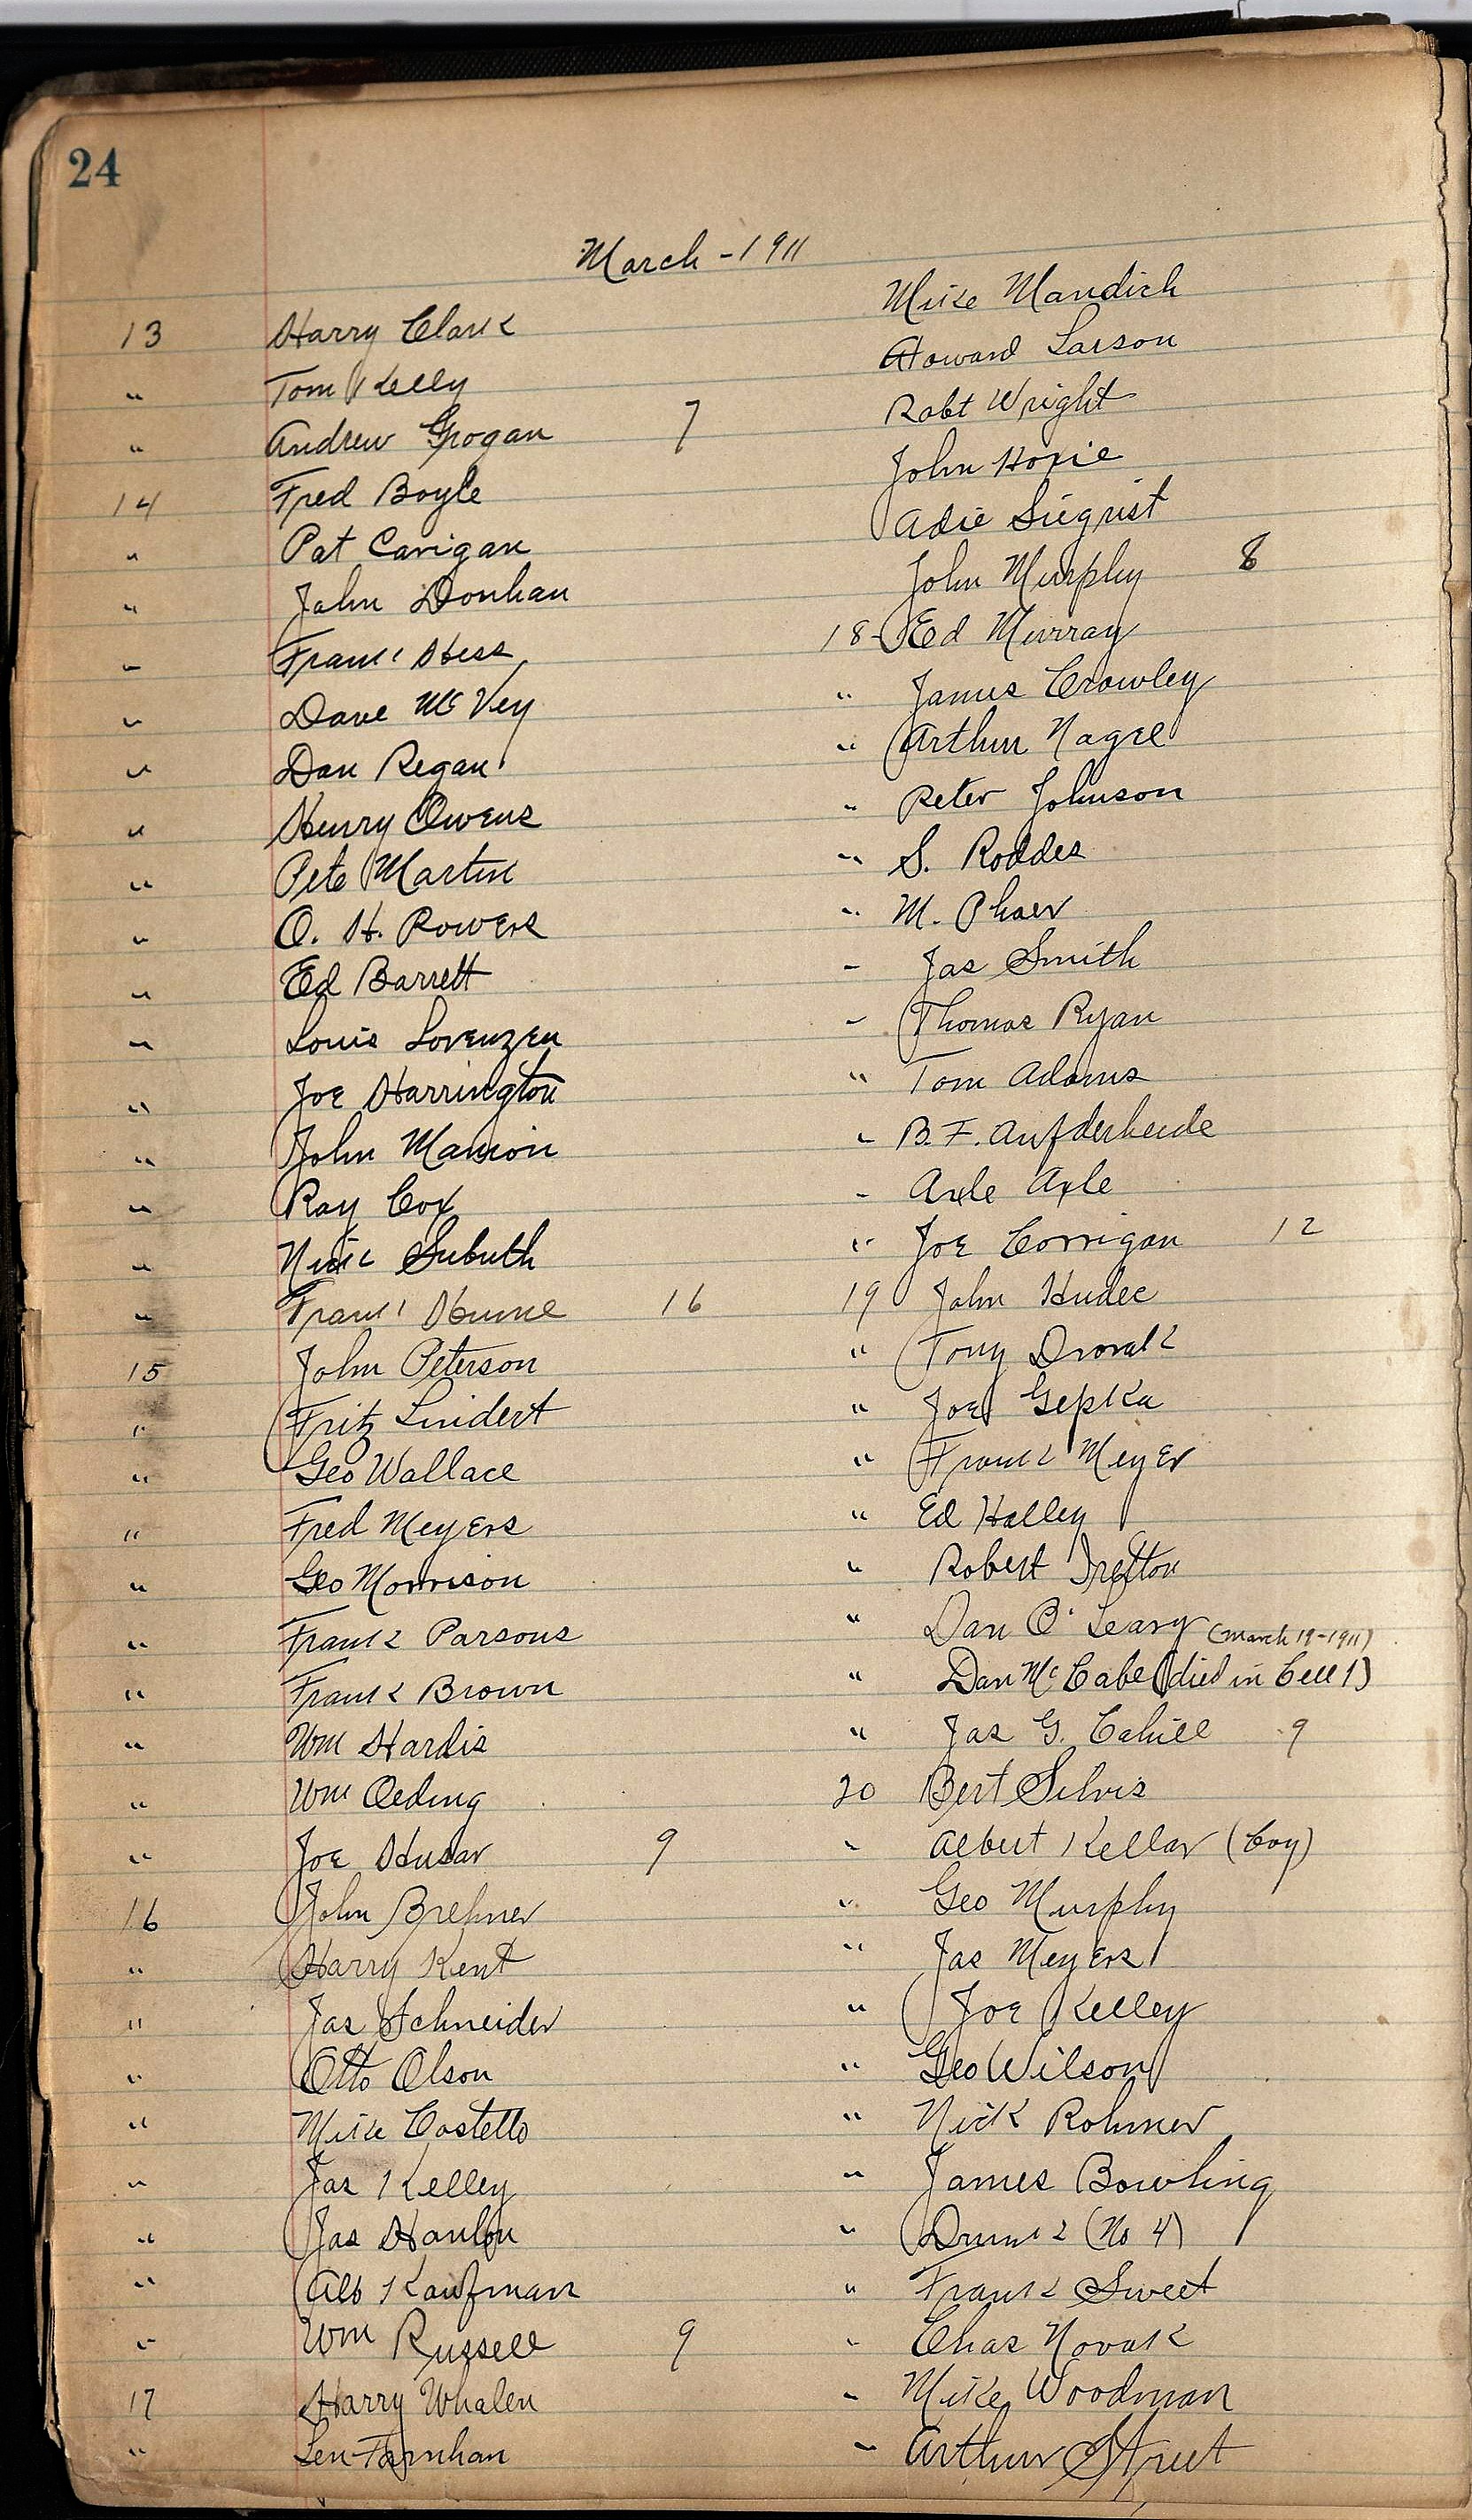 24
March - 1911
13 Harry Clark
" Tom Kelly
" Andrew Grogan 7
14 Fred Boyle
" Pat Carigan
" John Donhan
" Frank Hess
" Dave McVey
" Dan Regan
" Henry Owens
" Pete Martin
" O. H. Powers
" Ed Barrett
" Louis Lorenzen
" Joe Harrington
" John Manion
" Ray Cox
" Nick
" Frank Hume 16
15 John Peterson
" Fritz Lindert
" Geo Wallace
" Fred Meyers
" Geo Morrison
" Frank Parsons
" Frank Brown
" Wm Hardis
" Wm Oeding
" Joe Husar 9
16 John Brehner
" Harry Kent
" Jas Schneider
" Otto Olson
" Mike Costello
" Jas Kelley
" Jas Hanlon
" Alb Kaufman
" Wm Russell 9
17 Harry Whalen
" Len Farnhan
Mike Mandich
Howard Larson
Robt Wright
John Hoxie
Adie Siegrist
John Murphy 8
18- Ed Murray
" James Crowley
" Arthur Nagel
" Peter Johnson
" S. Roddes
" M. Phaer
" Jas Smith
" Thomas Ryan
" Tom Adams
" B. F. Aufderheide
" Axle Axle
" Joe Corrigan 12
19 John Hudec
" Tony Dvorak
" Joe Gepka
" Frank Meyer
" Ed Halley
" Robert
" Dan O'Leary (March 19-1911)
" Dan McCabe (died in Cell 1)
" Jas G. Cahill 9
20 Bert Silvis
" Albert Kellar (boy)
" Geo Murphy
" Jas Meyers
" Joe Kelley
" Geo Wilson
" Nick Rohmer
" James Bowling
" Drunk (No 4)
" Frank Sweet
" Chas Novak
" Mike Woodman
" Arthur Street